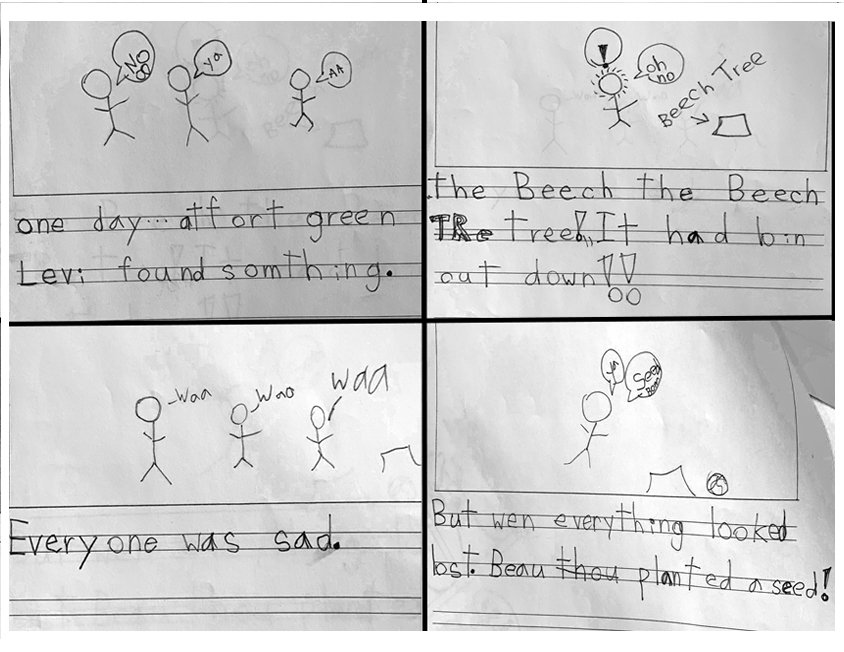 NO
ya
AA
one day... at fort green
Levi found somthing.
!
oh
no
Beech Tree
the Beech the Beech
TRe tree!! It had bin
cut down!!
Waa
Waa
waa
Everyone was sad.
ya
Seed
But wen everything looked
lost. Beau thou planted a seed!